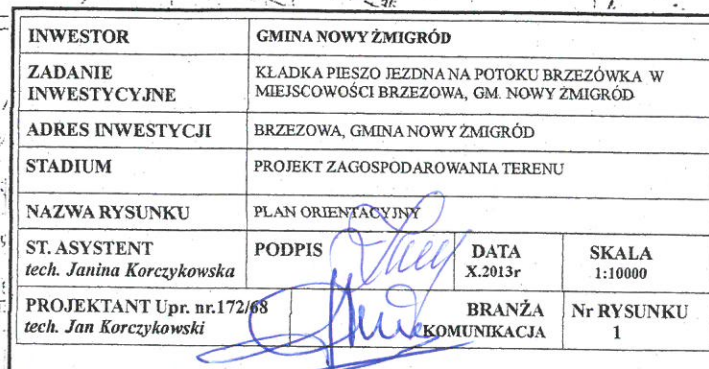 INWESTOR GMINA NOWY ŻMIGRÓD
ZADANIE INWESTYCYJNE KŁADKA PIESZO JEZDNA NA POTOKU BRZEZÓWKA W
MIEJSCOWOŚCI BRZEZOWA, GM. NOWY ŻMIGRÓD
ADRES INWESTYCJI BRZEZOWA, GMINA NOWY ŻMIGRÓD
STADIUM PROJEKT ZAGOSPODAROWANIA TERENU
NAZWA RYSUNKU PLAN ORIENTACYJNY
ST. ASYSTENT PODPIS DATA SKALA
tech. Janina Korczykowska X.2013r 1:10000
PROJEKTANT Upr. nr.172/68 BRANŻA Nr RYSUNKU
tech. Jan Korczykowski KOMUNIKACJA 1